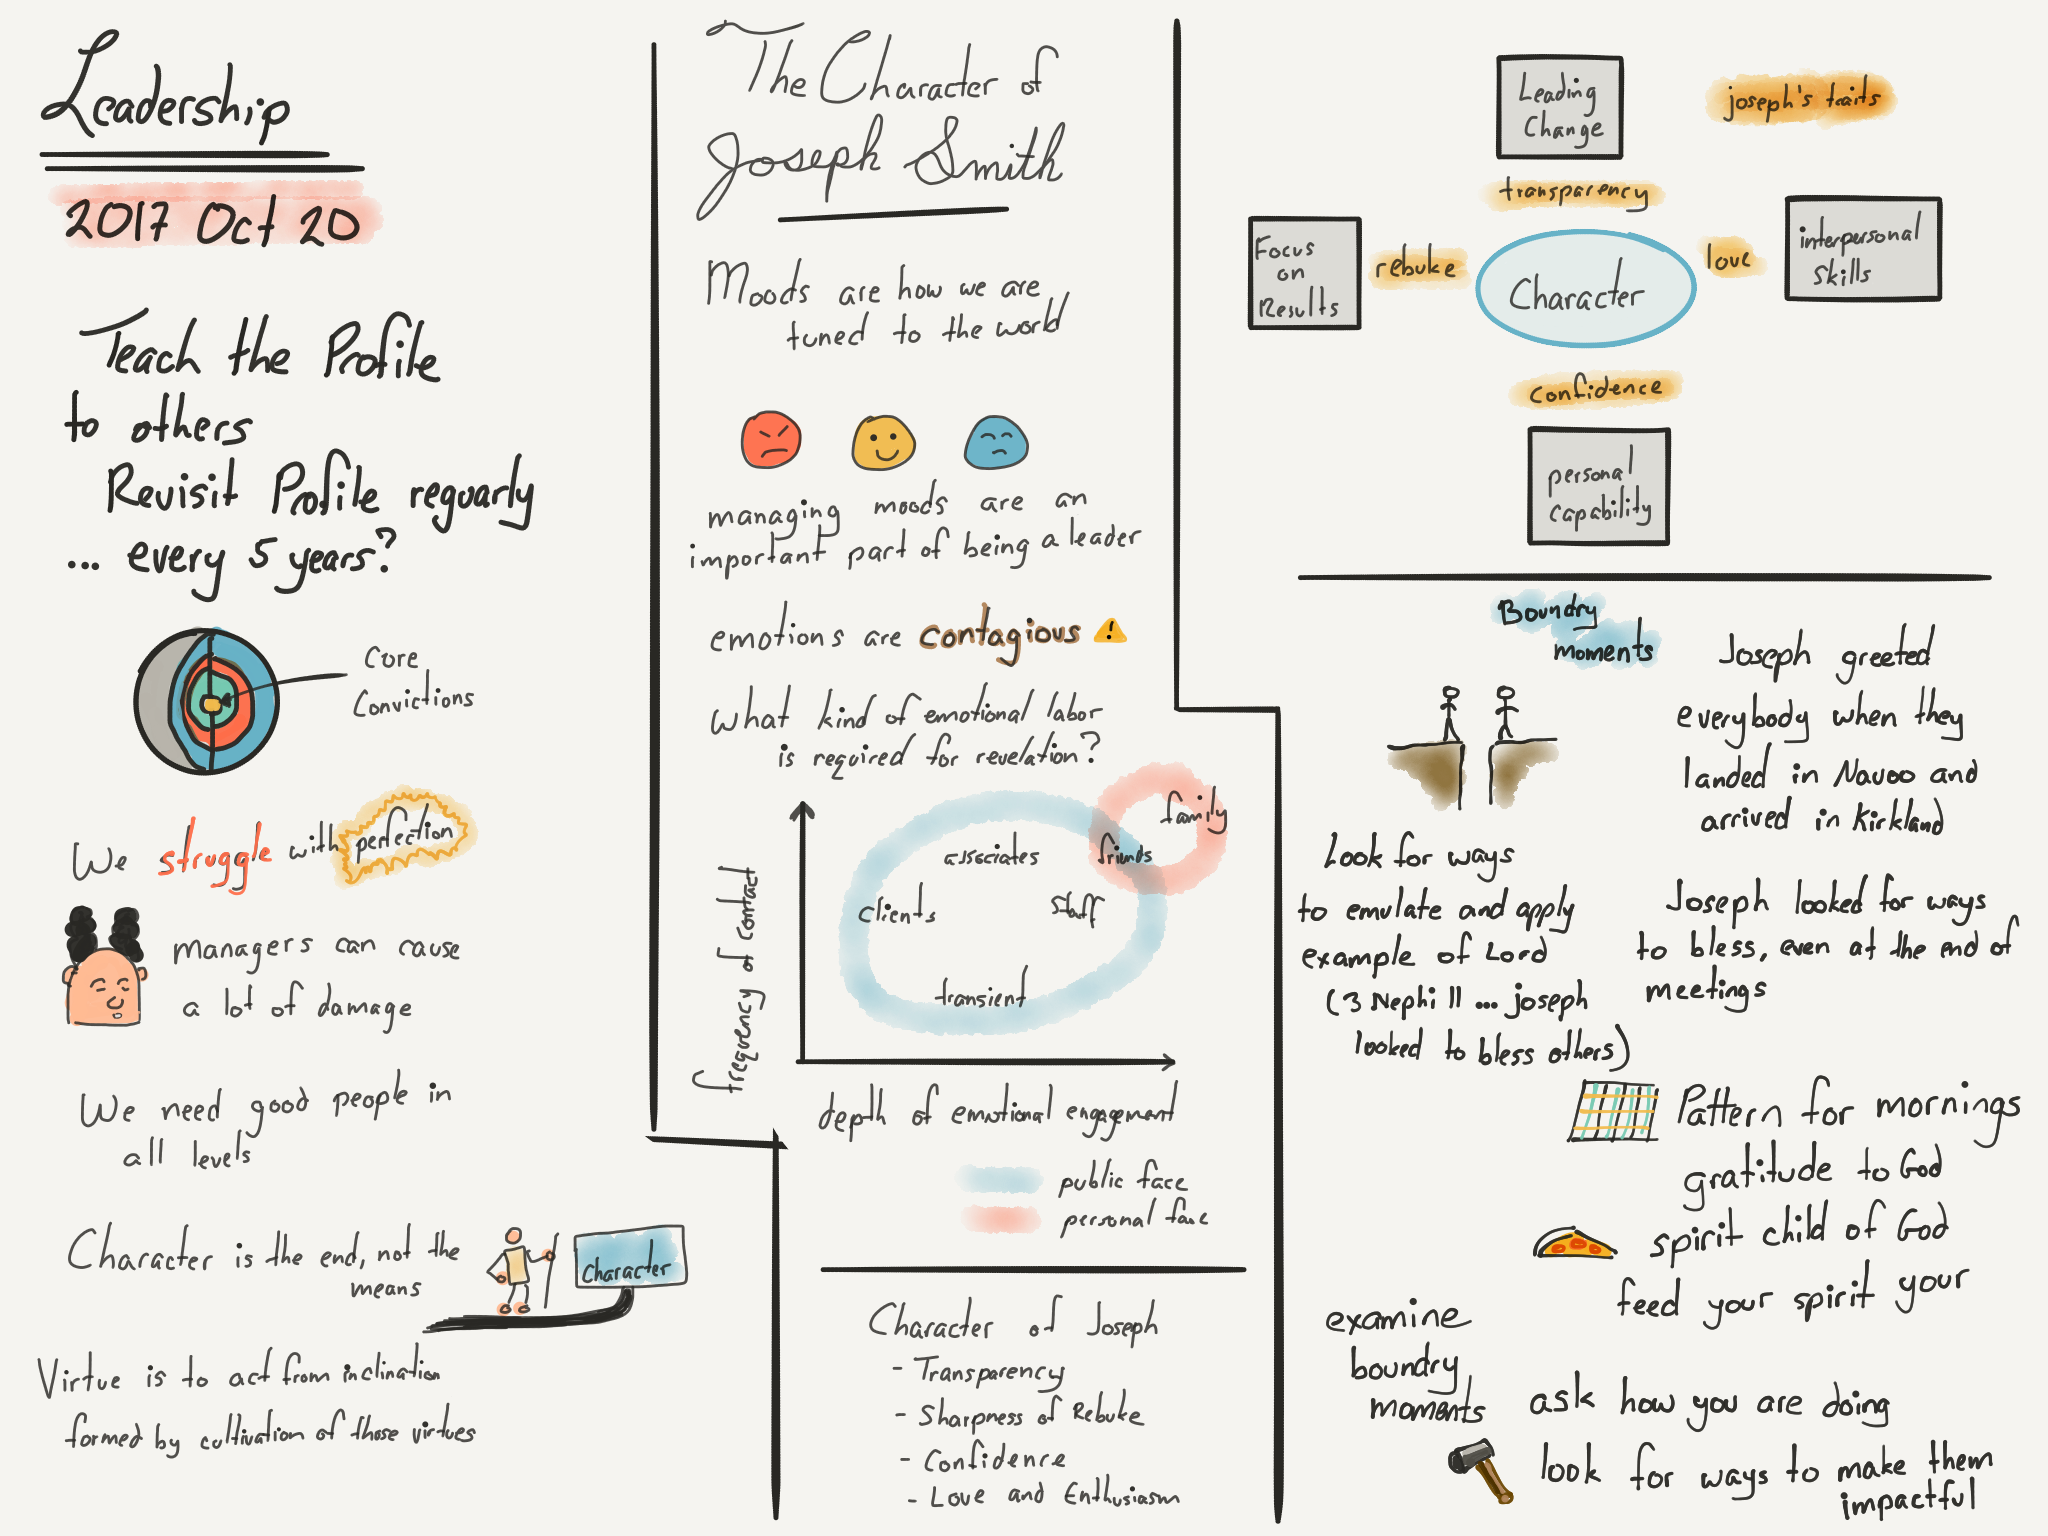 Leadership
2017 Oct 20
Teach the Profile
to others
Revisit Profile reguarly
... every 5 years?
Core
Convictions
We struggle with perfection
managers can cause
a lot of damage
We need good people in
all levels
Character is the end, not the
means
Character
Virtue is to act from inclination
formed by cultivation of those virtues
The Character of
Joseph Smith
Moods are how we are
tuned to the world
managing moods are an
important part of being a leader
emotions are contagious
what kind of emotional labor
is required for revelation?
family
associates
friends
clients
staff
transient
frequency of contact
depth of emotional engagement
public face
personal face
Character of Joseph
- Transparency
- Sharpness of Rebuke
- Confidence
- Love and Enthusiasm
Leading
Change
joseph's traits
transparency
Focus
on
Results
rebuke
Character
love
interpersonal
skills
confidence
personal
capability
Boundry
moments
Joseph greeted
everybody when they
landed in Navoo and
arrived in Kirkland
Look for ways
to emulate and apply
example of Lord
(3 Nephi 11 ... joseph
looked to bless others)
Joseph looked for ways
to bless, even at the end of
meetings
Pattern for mornings
gratitude to God
spirit child of God
feed your spirit your
examine
boundry
moments
ask how you are doing
look for ways to make them
impactful